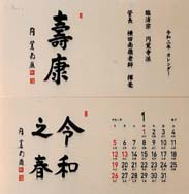 令和二年・カレンダー
臨済宗 円覚寺派
管長 横田南嶺老師 揮毫
壽康
円覚南嶺
令和
之春
1
1 2 3 4
5 6 7 8 9 10 11
12 13 14 15 16 17 18
19 20 21 22 23 24 25
26 27 28 29 30 31